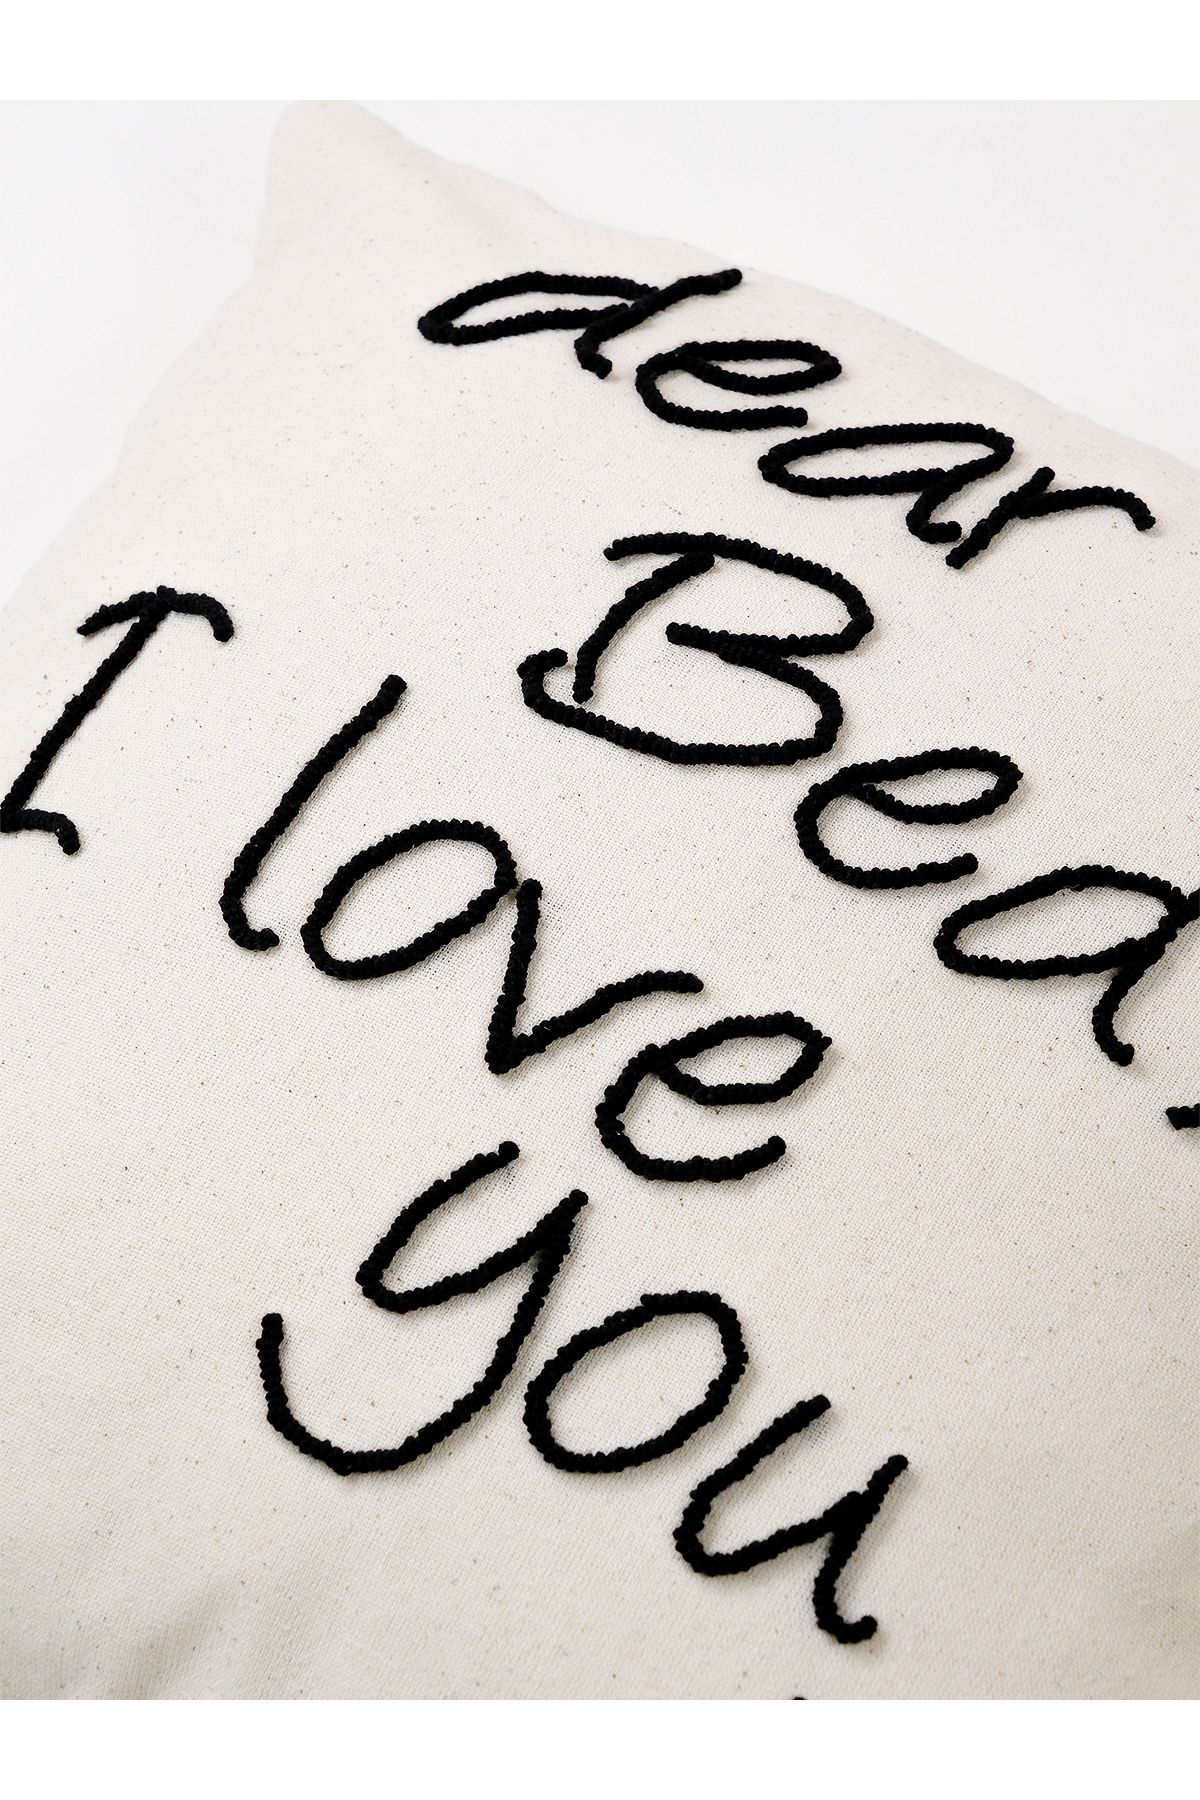 dear
Bed,
I love
you